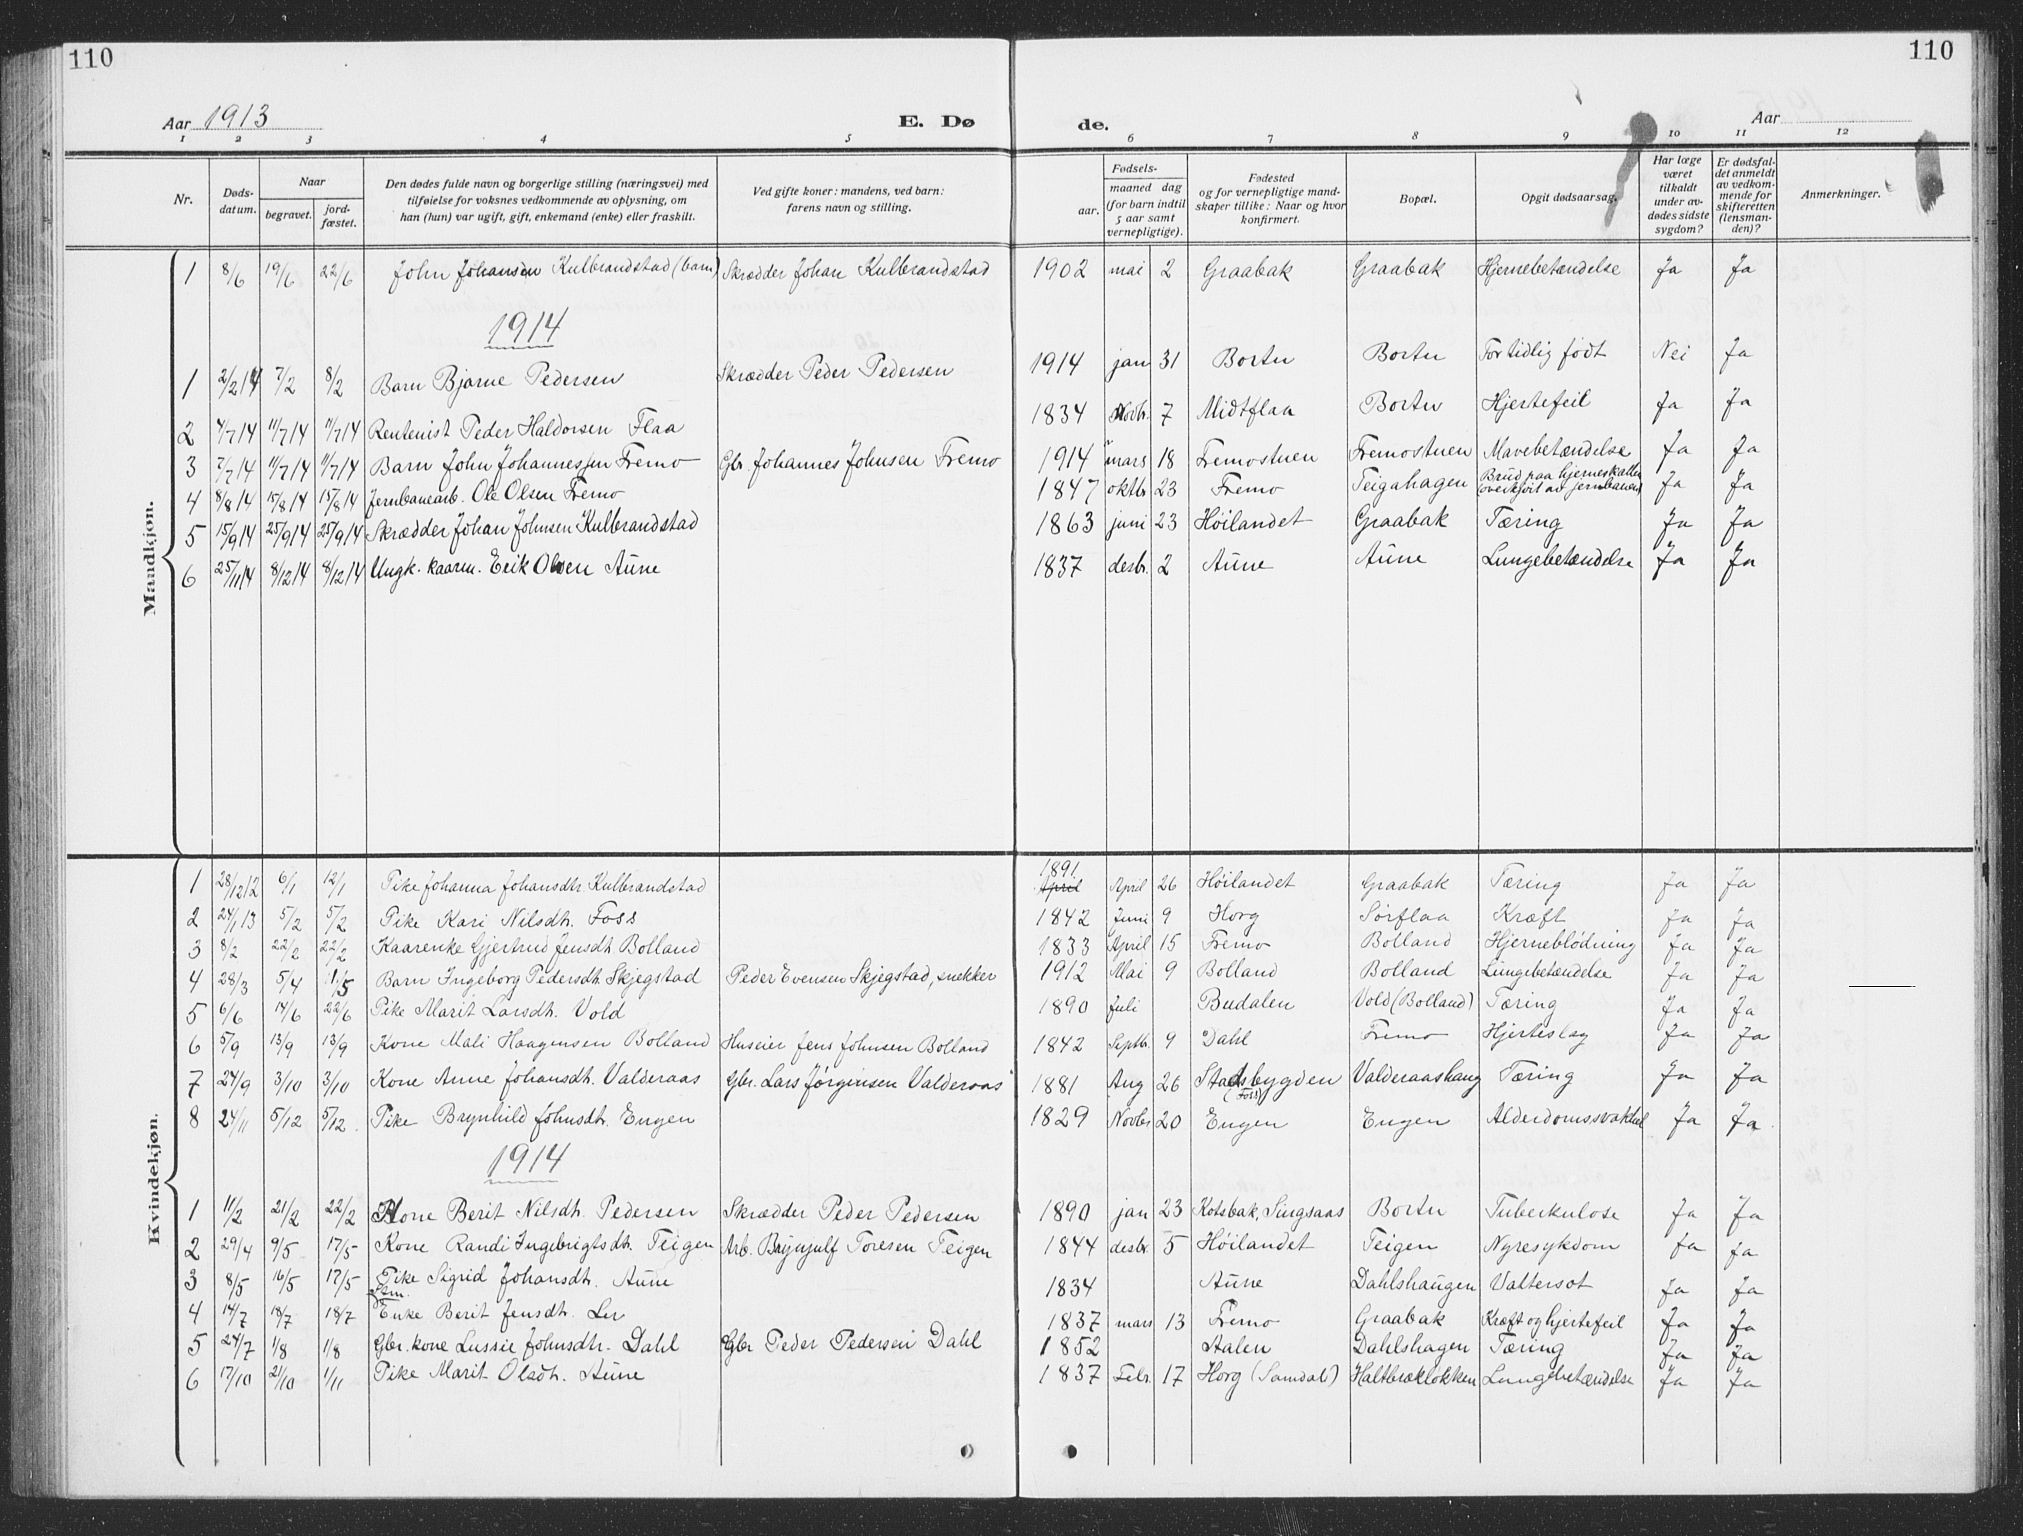 110
110
Aar 1913
E. Dø
de.
Aar
1 2 3 4 5 6 7 8 9 10 11 12
Nr.
Døds-
datum.
Naar
begravet.
jord-
fæstet.
Den dødes fulde navn og borgerlige stilling (næringsvei) med
tilføielse for voksnes vedkommende av oplysning, om
han (hun) var ugift, gift, enkemand (enke) eller fraskilt.
Ved gifte koner: mandens, ved barn:
farens navn og stilling.
Fødsels-
aar.
maaned dag
(for barn indtil
5 aar samt
vernepligtige).
Fødested
og for vernepligtige mand-
skaper tillike: Naar og hvor
konfirmert.
Bopæl.
Opgit dødsaarsag.
Har læge
været
tilkaldt
under av-
dødes sidste
sygdom?
Er dødsfal-
det anmeldt
av vedkom-
mende for
skifteretten
(lensman-
den)?
Anmerkninger.
Mandkjøn.
1 8/6 19/6 22/6 John Johansen Kulbrandstad (barn) Skrædder Johan Kulbrandstad 1902 mai 2 Graabak Graabak Hjernebetændelse Ja Ja
1914
1 2/2 14 7/2 8/2 Barn Bjarne Pedersen Skrædder Peder Pedersen 1914 jan 31 Bortn Bortn For tidlig født Nei Ja
2 4/7 14 11/7 14 11/7 14 Rentenist Peder Haldorsen Flaa 1834 Novbr. 7 Midtflaa Bortn Hjertefeil Ja Ja
3 7/7 14 11/7 14 11/7 14 Barn John Johannessen Fremo Gbr. Johannes Johnsen Fremo 1914 mars 18 Fremostuen Fremostuen Mavebetændelse Ja Ja
4 8/8 14 15/8 14 15/8 14 Jernbanearb. Ole Olsen Fremo 1847 oktbr 23 Fremo Teigahagen Brud paa hjerneskallen (overkjørt av jernbanen) Ja Ja
5 15/9 14 25/9 14 25/9 14 Skrædder Johan Johnsen Kulbrandstad 1863 juni 23 Høilandet Graabak Tæring Ja Ja
6 25/11 14 8/12 14 8/12 14 Ungk. kaarm. Erik Olsen Aune 1837 desbr. 2 Aune Aune Lungebetændelse Ja Ja
Kvindekjøn.
1 28/12 12 6/1 12/1 Pike Johanna Johansdtr. Kulbrandstad 1891 April April 26 Høilandet Graabak Tæring Ja Ja
2 24/1 13 5/2 5/2 Pike Kari Nilsdtr. Foss 1842 Juni 9 Horg Sørflaa Kræft Ja Ja
3 8/2 22/2 22/2 Kaarenke Gjertrud Jensdtr Bolland 1833 April 15 Fremo Bolland Hjerneblødning Ja Ja
4 28/3 5/4 11/5 Barn Ingeborg Pedersdtr Skjegstad Peder Evensen Skjegstad, snekker 1912 Mai 9 Bolland Bolland Lungebetændelse Ja Ja
5 6/6 14/6 22/6 Pike Marit Larsdtr. Vold 1890 Juli Budalen Vold (Bolland) Tæring Ja Ja
6 5/9 13/9 13/9 Kone Mali Haagensen Bolland Huseier Jens Johnsen Bolland 1842 Septbr. 9 Dahl Fremo Hjerteslag Ja Ja
7 24/9 3/10 3/10 Kone Anne Johansdtr. Valderaas Gbr. Lars Jørginsen Valderaas 1881 Aug 26 Stadsbygden (Foss) Valderaashaug Tæring Ja Ja
8 24/11 5/12 5/12. Pike Brynhild Johnsdtr. Engen 1829 Novbr 20 Engen Engen Alderdomssvakhet Ja Ja
1914
1 11/2 21/2 22/2 Kone Berit Nilsdtr. Pedersen Skrædder Peder Pedersen 1890 jan 23 Kotsbak, Singsaas Bortn Tuberkulose Ja Ja
2 29/4 9/5 17/5 Kone Randi Ingebrigtsdtr. Teigen Arb. Brynjulf Toresen Teigen 1844 desbr. 5 Høilandet Teigen Nyresykdom Ja Ja
3 8/5 16/5 17/5 Pike Sigrid Johansdtr. Aune 1834 Aune Dahlshaugen Vattersot Ja Ja
4 14/7 18/7 18/7 Enke Berit Jensdtr. Ler 1837 mars 13 Fremo Graabak Kræft og hjertefeil Ja Ja
5 24/7 1/8 1/8 Gbr. kone Lussie Johnsdtr. Dahl Gbr Peder Pedersen Dahl 1852 Aalen Dahlshagen Tæring Ja Ja
6 17/10 21/10 1/11 Pike Marit Olsdtr. Aune 1837 Febr. 17 Horg (Samdal) Haltbrækløkken Lungebetændelse Ja Ja